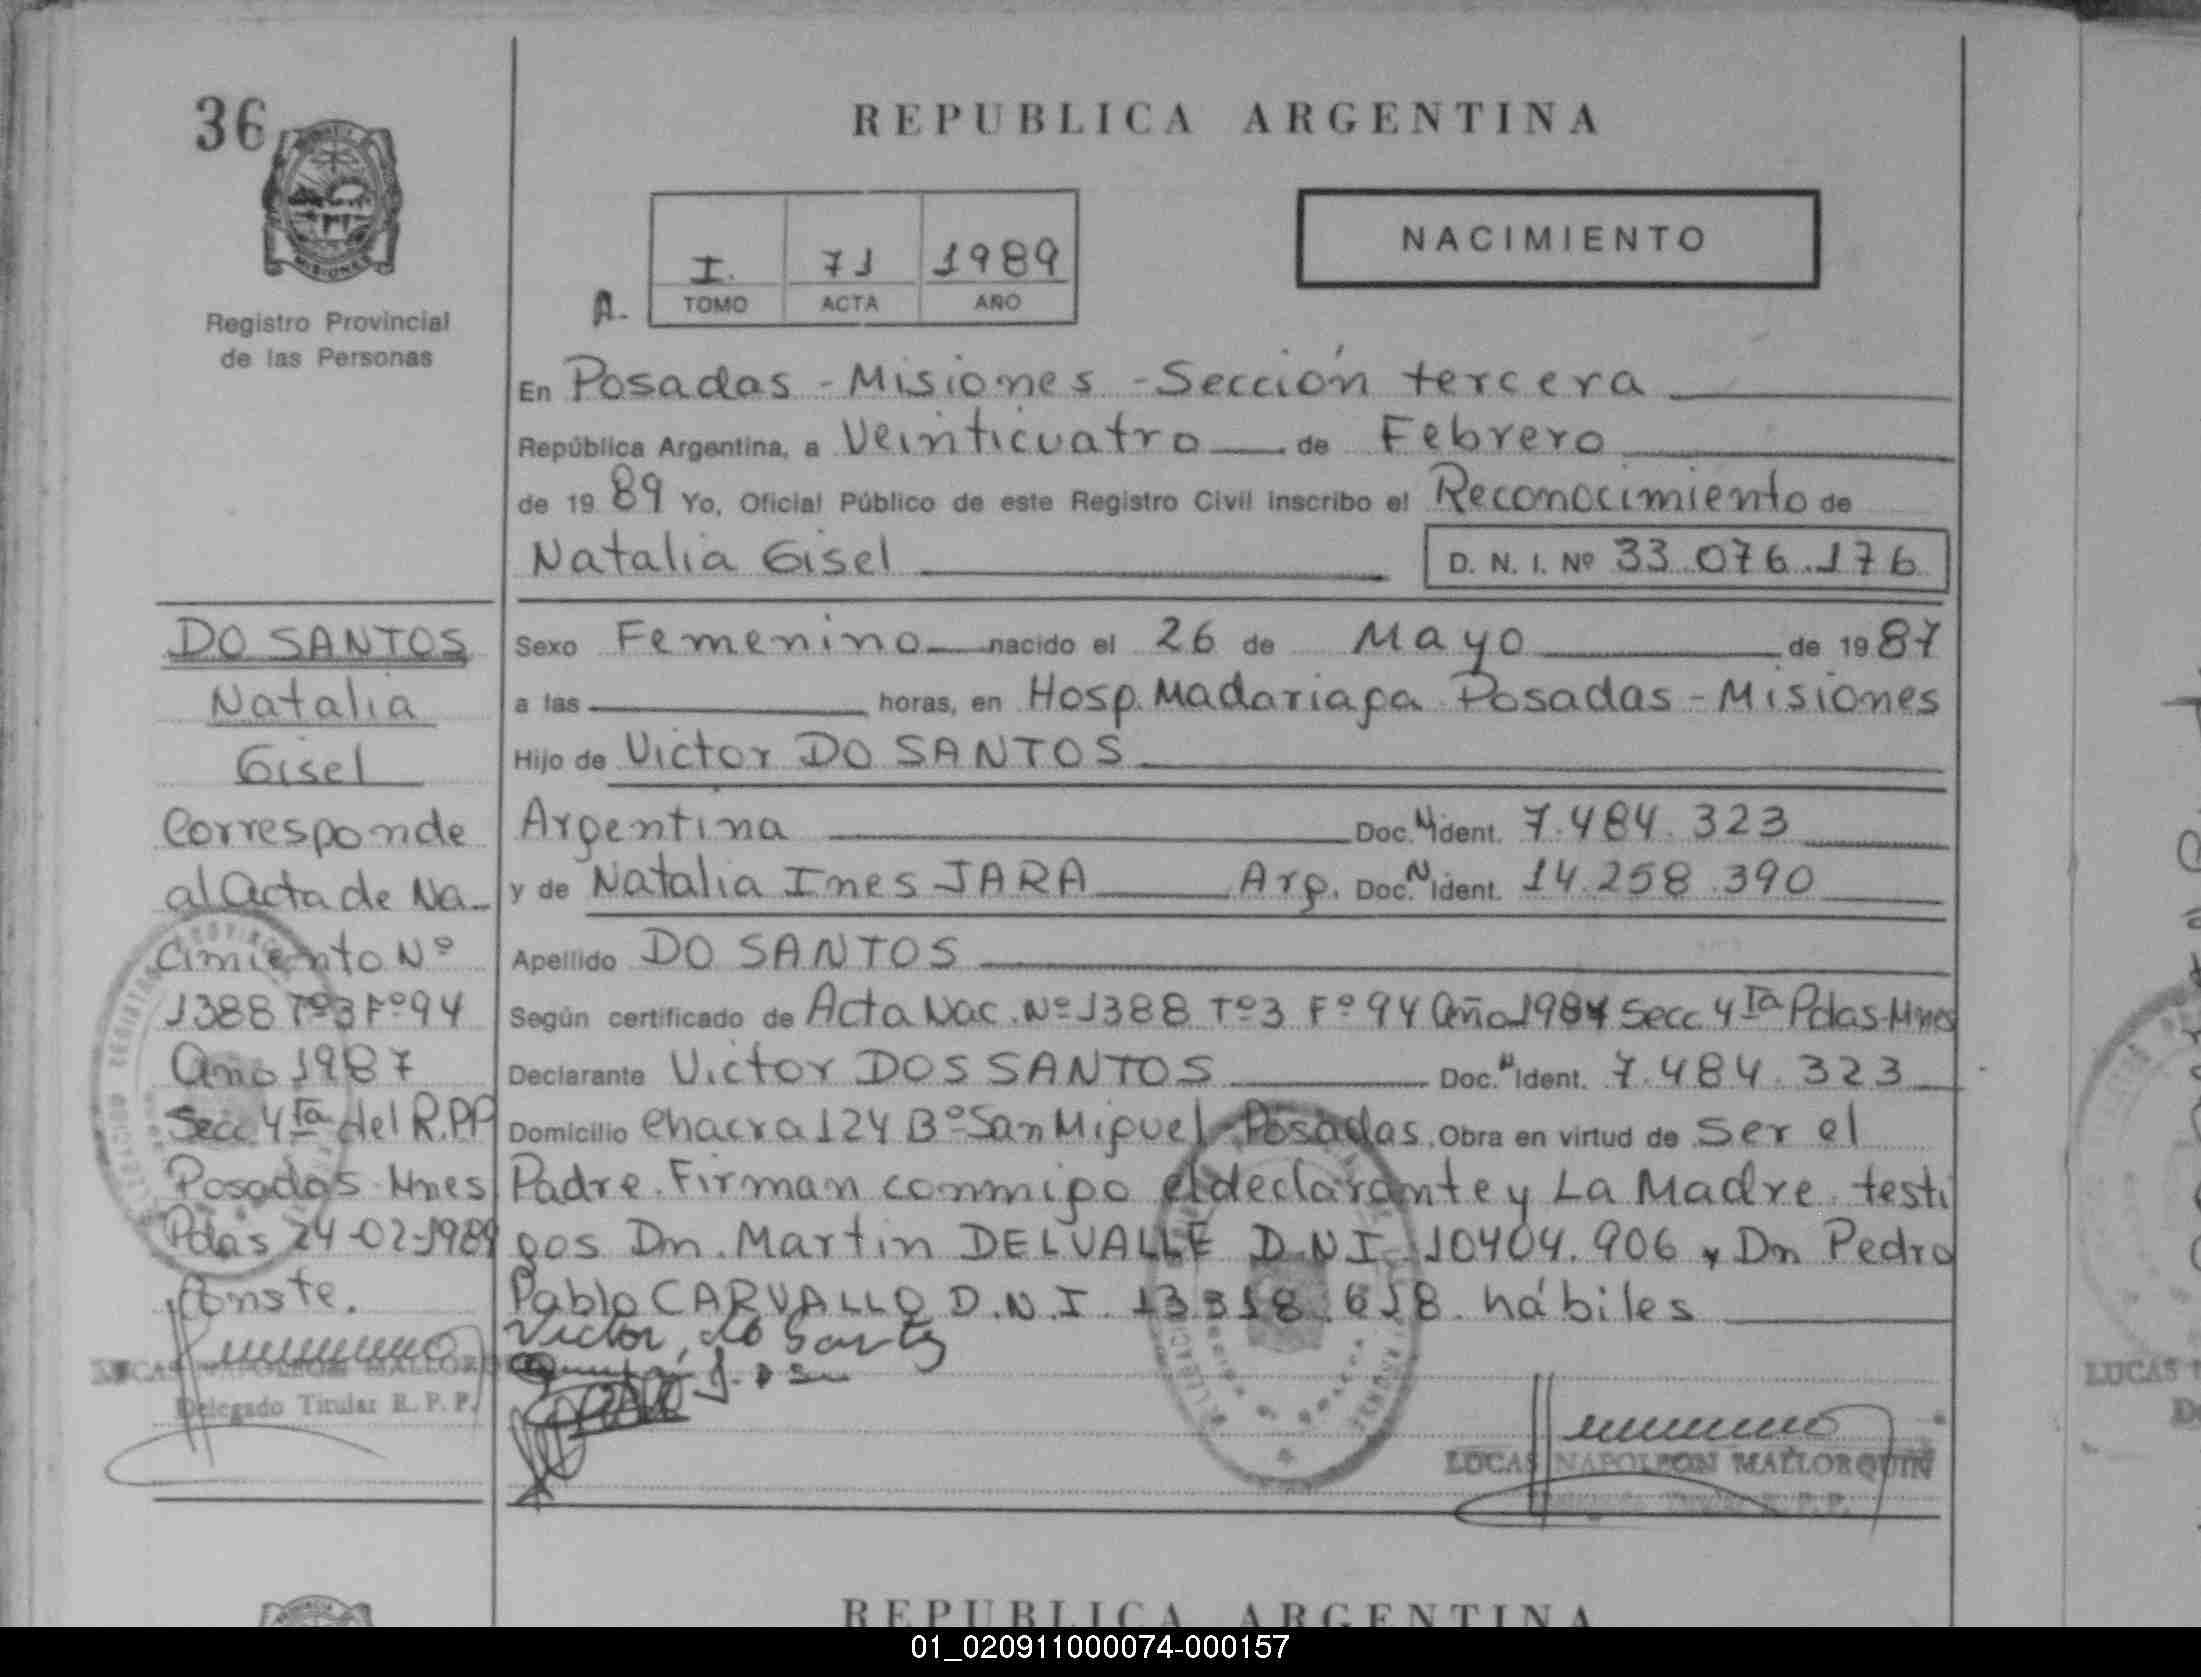 36
REPUBLICA ARGENTINA
MISIONES
Registro Provincial
de las Personas
A.
I. 71 1989
TOMO ACTA AÑO
NACIMIENTO
En Posadas - Misiones - Sección tercera
República Argentina, a Veinticuatro de Febrero
de 1989 Yo, Oficial Público de este Registro Civil inscribo el Reconocimiento de
Natalia Gisel D. N. I. Nº 33.076.176
Sexo Femenino nacido el 26 de Mayo de 1987
a las horas, en Hosp. Madariaga Posadas - Misiones
Hijo de Victor DO SANTOS
Argentina Doc. N ident. 7.484.323
y de Natalia Ines JARA Arg. Doc. N ident. 14.258.390
Apellido DO SANTOS
Según certificado de Acta Nac. Nº 1388 Tº3 Fº94 año 1987 Secc 4ta Pdas-Mnes
Declarante Victor DOS SANTOS Doc. N Ident. 7.484.323
Domicilio Chacra 124 Bº San Miguel Posadas. Obra en virtud de Ser el
Padre. Firman conmigo el declarante y La Madre. testi
gos Dn. Martin DELVALLE D.N.I. 10404.906 y Dn Pedro
Pablo CARVALLO D.N.I. 13.318.618. hábiles
Victor, do Santos
LUCAS NAPOLEON MALLORQUIN
DO SANTOS
Natalia
Gisel
Corresponde
al acta de Na-
cimiento Nº
1388 Tº3 Fº94
año 1987
Secc 4ta del R.P.P
Posadas Mnes
Pdas 24-02-1989
Conste.
LUCAS NAPOLEON MALLOR
Delegado Titular R. P. P.
LUCAS
REPUBLICA ARGENTINA
01_020911000074-000157